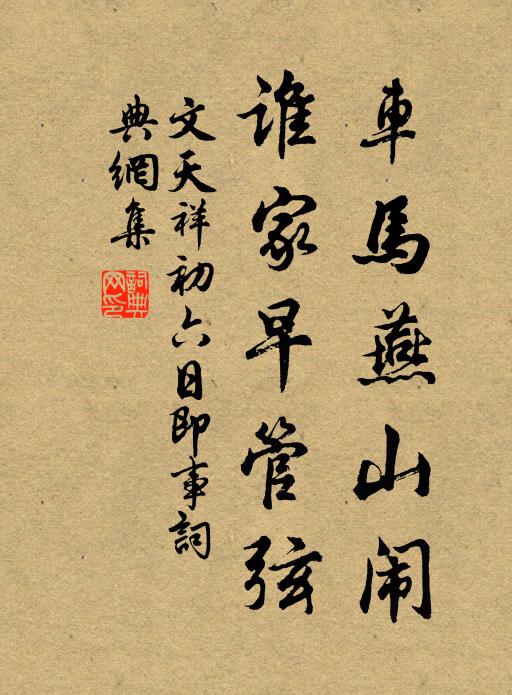 車馬燕山闹
谁家早管弦
文天祥初六日即事詞
典網集
詞典网印